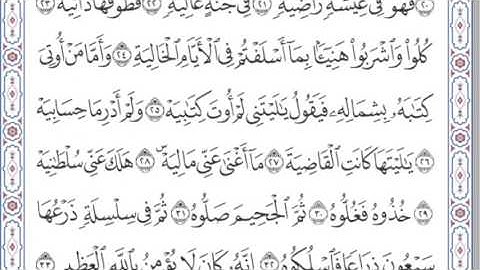 ٢٠ فَهُوَ فِي عِيشَةٍ رَّاضِيَةٍ ٢١ فِي جَنَّةٍ عَالِيَةٍ ٢٢ قُطُوفُهَا دَانِيَةٌ ٢٣
كُلُوا۟ وَٱشْرَبُوا۟ هَنِيٓـًٔۢا بِمَآ أَسْلَفْتُمْ فِي ٱلْأَيَّامِ ٱلْخَالِيَةِ ٢٤ وَأَمَّا مَنْ أُوتِيَ
كِتَٰبَهُۥ بِشِمَالِهِۦ فَيَقُولُ يَٰلَيْتَنِي لَمْ أُوتَ كِتَٰبِيَهْ ٢٥ وَلَمْ أَدْرِ مَا حِسَابِيَهْ
٢٦ يَٰلَيْتَهَا كَانَتِ ٱلْقَاضِيَةَ ٢٧ مَآ أَغْنَىٰ عَنِّي مَالِيَهْ ۜ ٢٨ هَلَكَ عَنِّي سُلْطَٰنِيَهْ
٢٩ خُذُوهُ فَغُلُّوهُ ٣٠ ثُمَّ ٱلْجَحِيمَ صَلُّوهُ ٣١ ثُمَّ فِي سِلْسِلَةٍ ذَرْعُهَا
سَبْعُونَ ذِرَاعًا فَٱسْلُكُوهُ ٣٢ إِنَّهُۥ كَانَ لَا يُؤْمِنُ بِٱللَّهِ ٱلْعَظِيمِ ٣٣